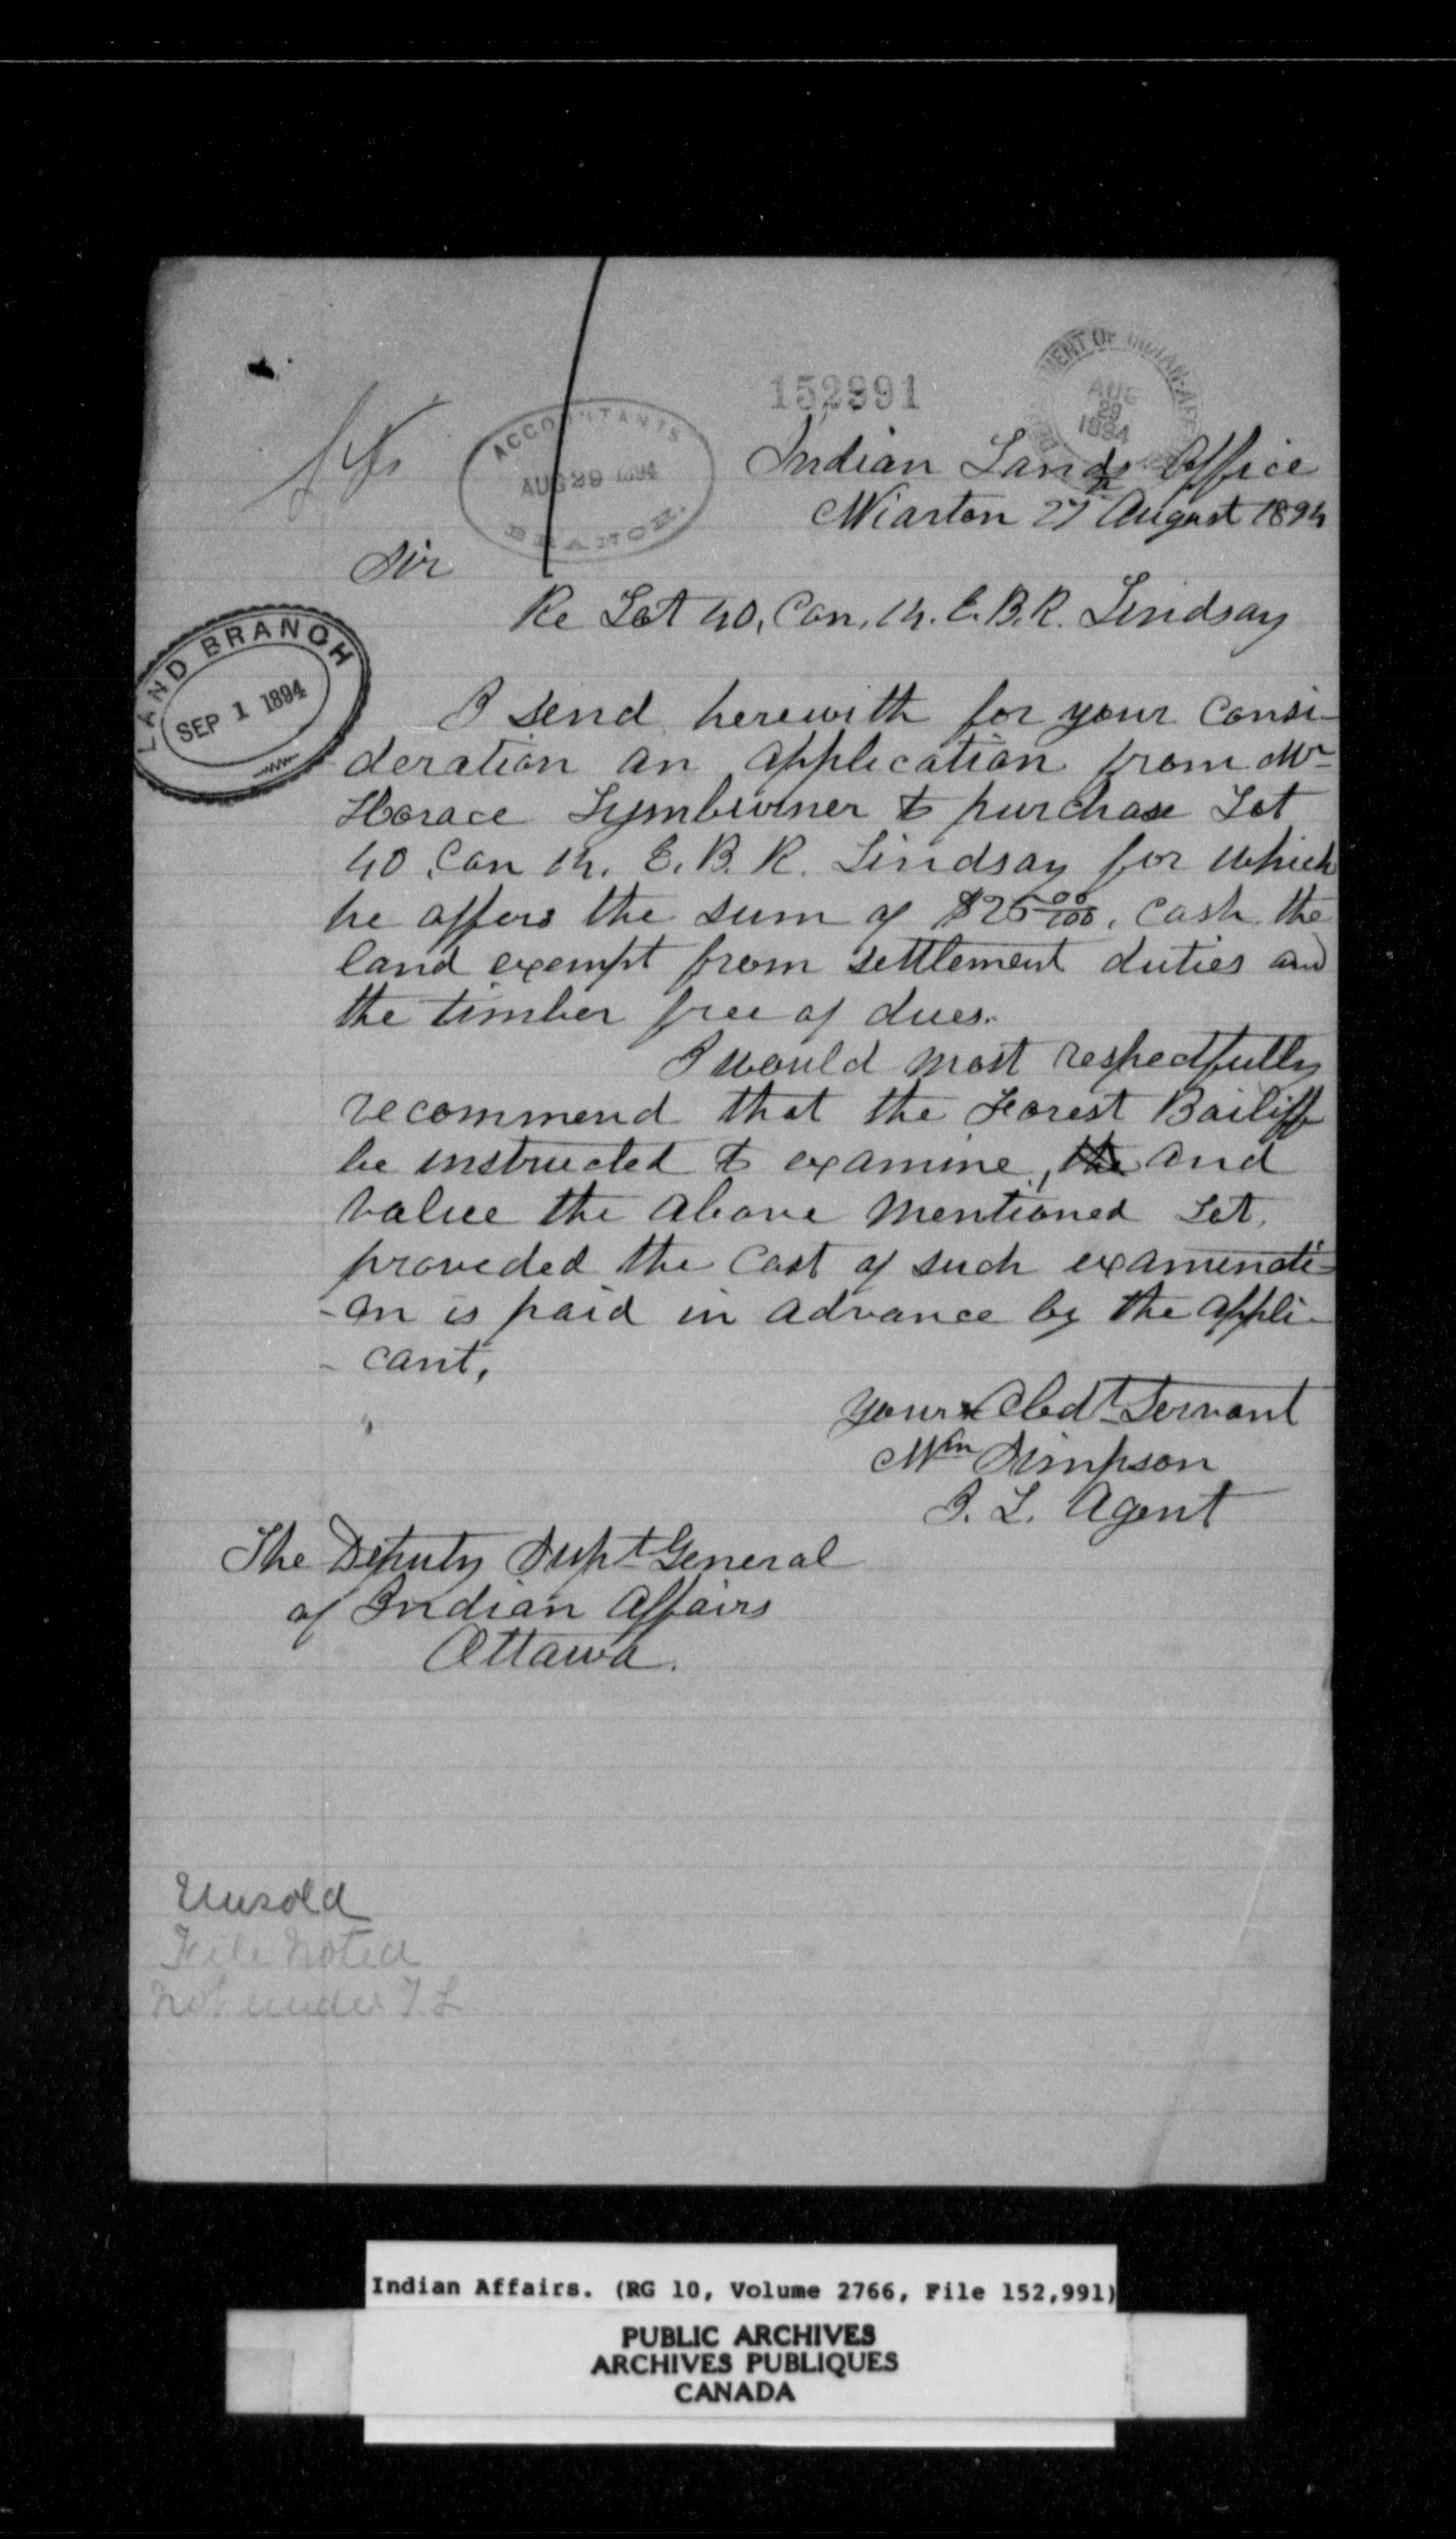 152991
DEPARTMENT OF INDIAN AFFAIRS
AUG
29
1894
ACCOUNTANTS
AUG 29 1894
BRANCH.
Indian Lands Office
Wiarton 27 August 1894
Sir
Re Lot 40, Con, 14. E. B. R. Lindsay
LAND BRANCH
SEP 1 1894
I send herewith for your consi-
deration an application from Mr
Horace Lymburner to purchase Lot
40 Con 14. E. B. R. Lindsay for which
he offers the sum of $25 00/100, cash the
land exempt from settlement duties and
the timber free of dues.
I would most respectfully
recommend that the Forest Bailiff
be instructed to examine, the and
value the above mentioned Lot,
provided the cost of such examinati-
-on is paid in advance by the appli-
- cant,
Yours Obdt Servant
Wm Simpson
I. L. Agent
The Deputy Supt General
of Indian Affairs
Ottawa.
Unsold
File noted
Not under T. L
Indian Affairs. (RG 10, Volume 2766, File 152,991)
PUBLIC ARCHIVES
ARCHIVES PUBLIQUES
CANADA